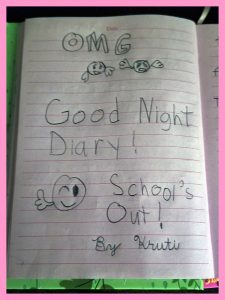 OMG
Good Night
Diary!
School's
Out!
By Kruti